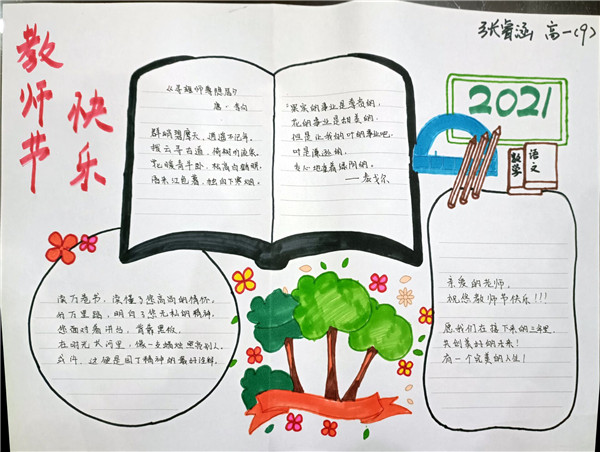 教师节
快乐
张睿涵 高一(9)
《寻雍师尊隐居》
唐·李白
群峭碧摩天,逍遥不记年。
拨云寻古道,倚树听流泉。
花暖青牛卧,松高白鹤眠。
语来江色暮,独自下寒烟。
果实的事业是尊贵的,
花的事业是甜美的,
但是让我做叶的事业吧,
叶是谦逊的,
专心地垂着绿阴的。
——泰戈尔
2021
语文
数学
读万卷书,读懂了您高尚的情怀。
行万里路,明白了您无私的精神。
您面对着讲台,背靠黑板,
在时光长河里,像一支蜡烛照亮别人。
或许,这便是园丁精神的最好诠释。
亲爱的老师,
祝您教师节快乐!!!
愿我们在接下来的三年里,
共创美好的未来!
有一个完美的人生!